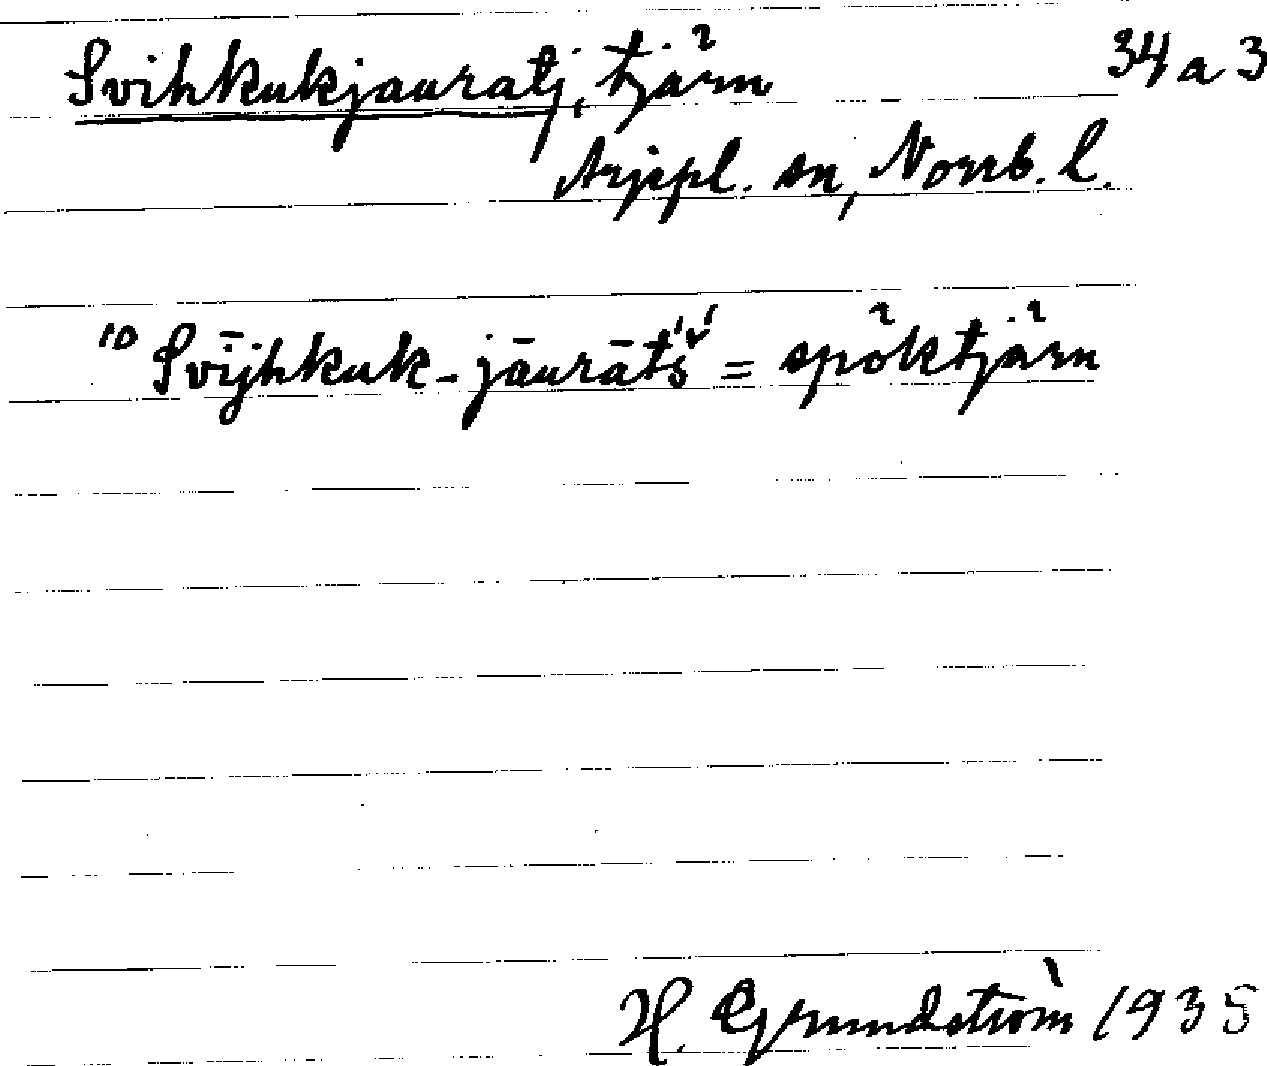 Svihkukjauratj, tjärn 34 a 3
Arjepl. sn, Norrb. l.
10 Svijhkuk-jāurāt́š́ = spöktjärn
H. Grundström 1935